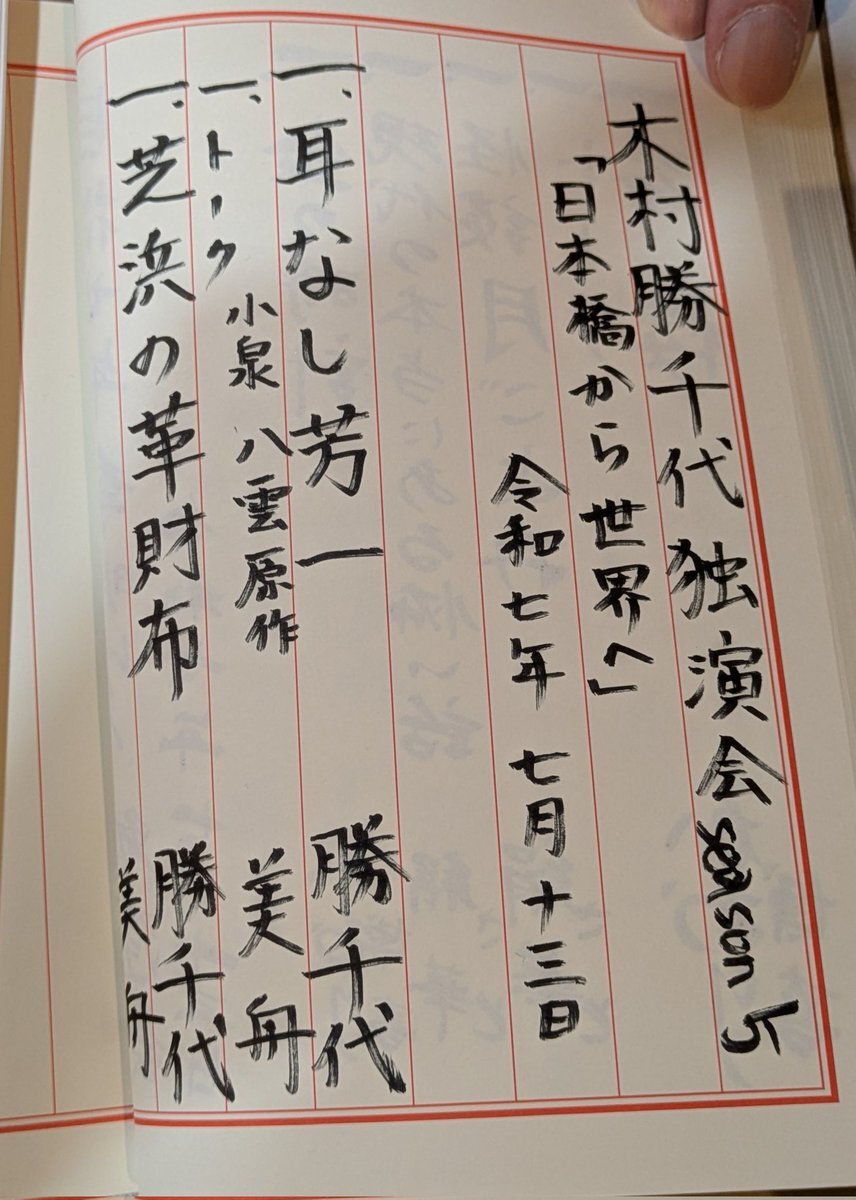 木村勝千代 独演会 season 5
「日本橋から世界へ」
令和七年 七月十三日
一、耳なし芳一 勝千代
小泉八雲原作 美舟
一、トーク
一、芝浜の革財布 勝千代
美舟